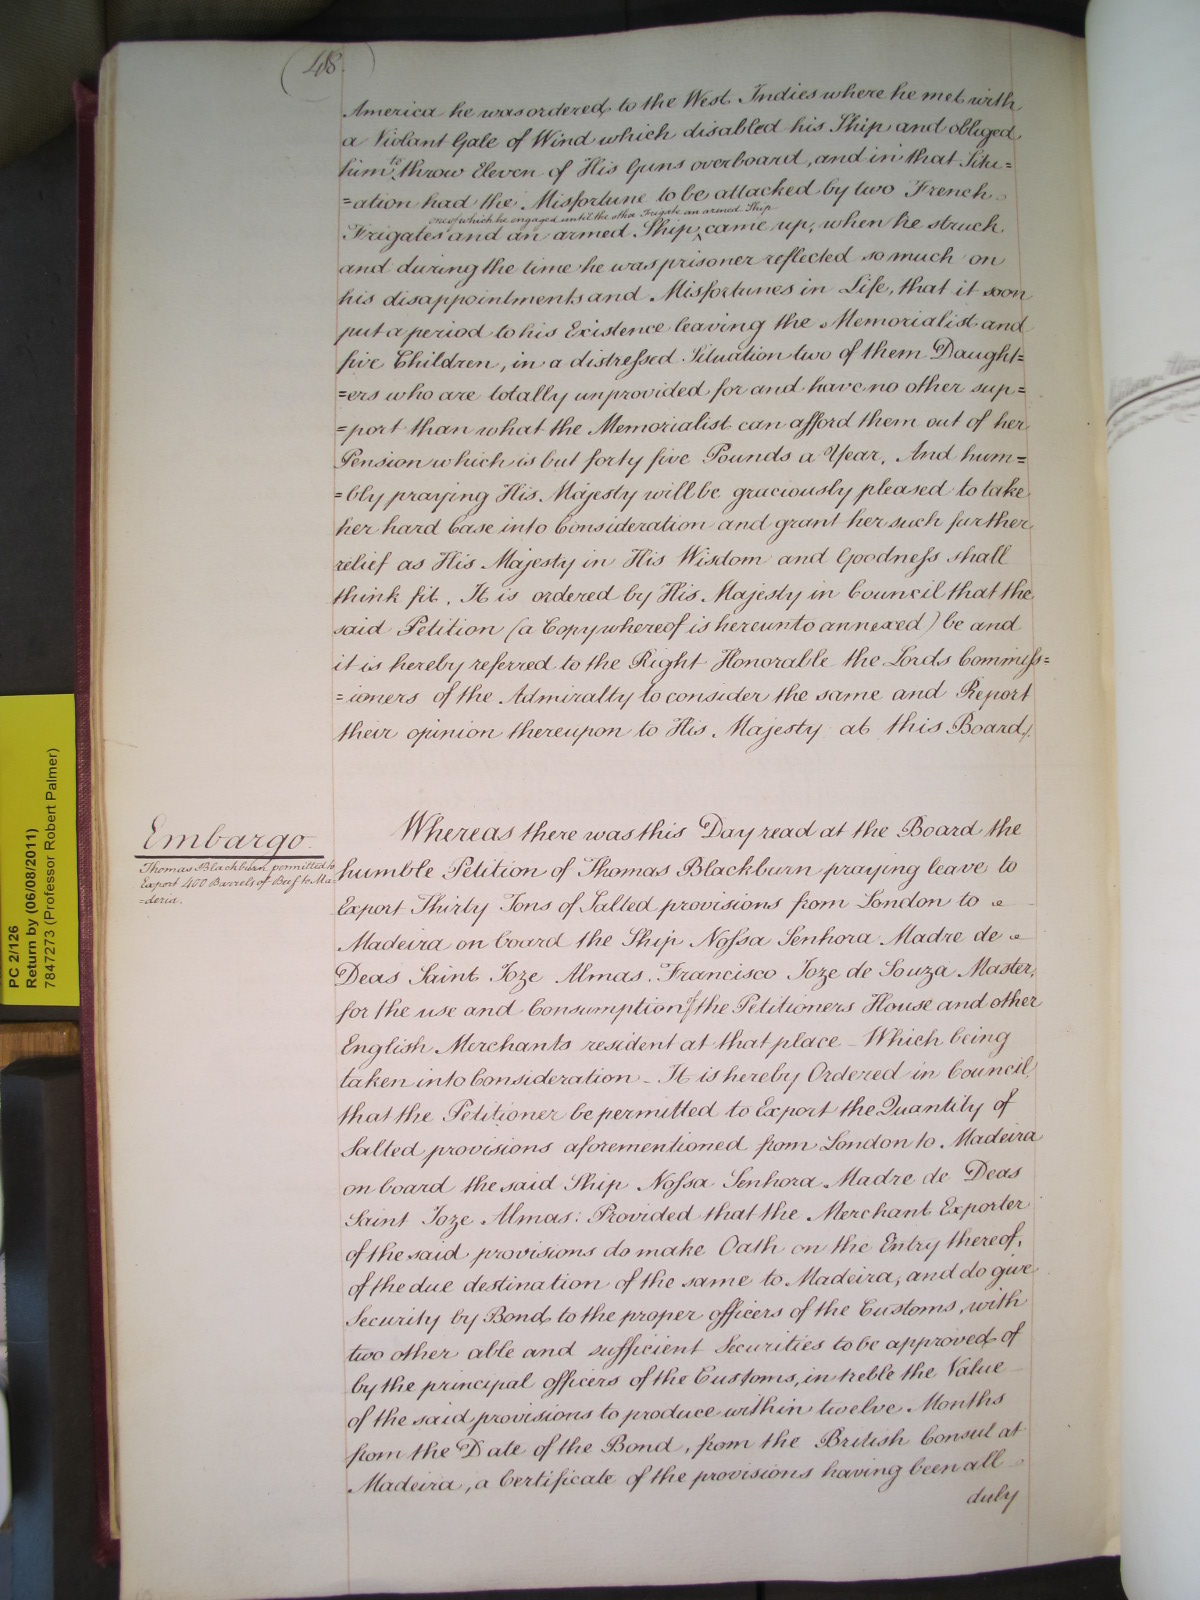 48.
America he was ordered to the West Indies where he met with
a Violant Gale of Wind which disabled his Ship and obliged
him to throw Eleven of His Guns overboard, and in that Situ=
=ation had the Misfortune to be attacked by two French
one of which he engaged until the other Frigate an armed Ship
Frigates and an armed Ship came up, when he struck
and during the time he was prisoner reflected so much on
his disappointments and Misfortunes in Life, that it soon
put a period to his Existence leaving the Memorialist and
five Children, in a distressed Situation two of them Daught=
=ers who are totally unprovided for and have no other sup=
=port than what the Memorialist can afford them out of her
Pension which is but forty five Pounds a Year. And hum=
=bly praying His Majesty will be graciously pleased to take
her hard Case into Consideration and grant her such further
relief as His Majesty in His Wisdom and Goodness shall
think fit. It is ordered by His Majesty in Council that the
said Petition (a Copy whereof is hereunto annexed) be and
it is hereby referred to the Right Honorable the Lords Commiss=
=ioners of the Admiralty to consider the same and Report
their opinion thereupon to His Majesty at this Board.
Embargo.
Thomas Blackburn permitted to
Export 400 Barrels of Beef to Ma=
=deria.
Whereas there was this Day read at the Board the
humble Petition of Thomas Blackburn praying leave to
Export Thirty Tons of Salted provisions from London to
Madeira on board the Ship Nossa Senhora Madre de
Deas Saint Joze Almas. Francisco Joze de Souza Master,
for the use and Consumption of the Petitioners House and other
English Merchants resident at that place - Which being
taken into Consideration - It is hereby Ordered in Council,
that the Petitioner be permitted to Export the Quantity of
Salted provisions aforementioned from London to Madeira
on board the said Ship Nossa Senhora Madre de Deas
Saint Joze Almas: Provided that the Merchant Exporter
of the said provisions do make Oath on the Entry thereof,
of the due destination of the same to Madeira, and do give
Security by Bond to the proper officers of the Customs, with
two other able and sufficient Securities to be approved of
by the principal officers of the Customs, in treble the Value
of the said provisions to produce within twelve Months
from the Date of the Bond, from the British Consul at
Madeira, a Certificate of the provisions having been all
duly
PC 2/126
Return by (06/08/2011)
7847273 (Professor Robert Palmer)